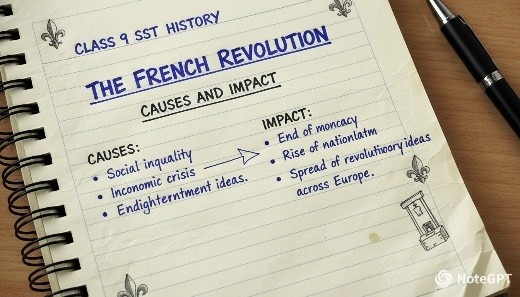 CLASS 9 SST HISTORY
THE FRENCH REVOLUTION
CAUSES AND IMPACT
CAUSES:
• Social inquality
• Inconomic crisis
• Endighterntment ideas.
IMPACT:
• End of moncacy
• Rise of nationlatm
• Spread of revolutivory ideas
across Europe.
NoteGPT